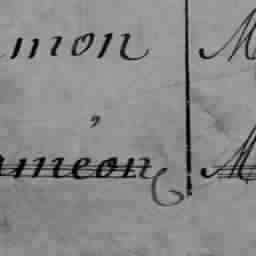 mon M
ameon M